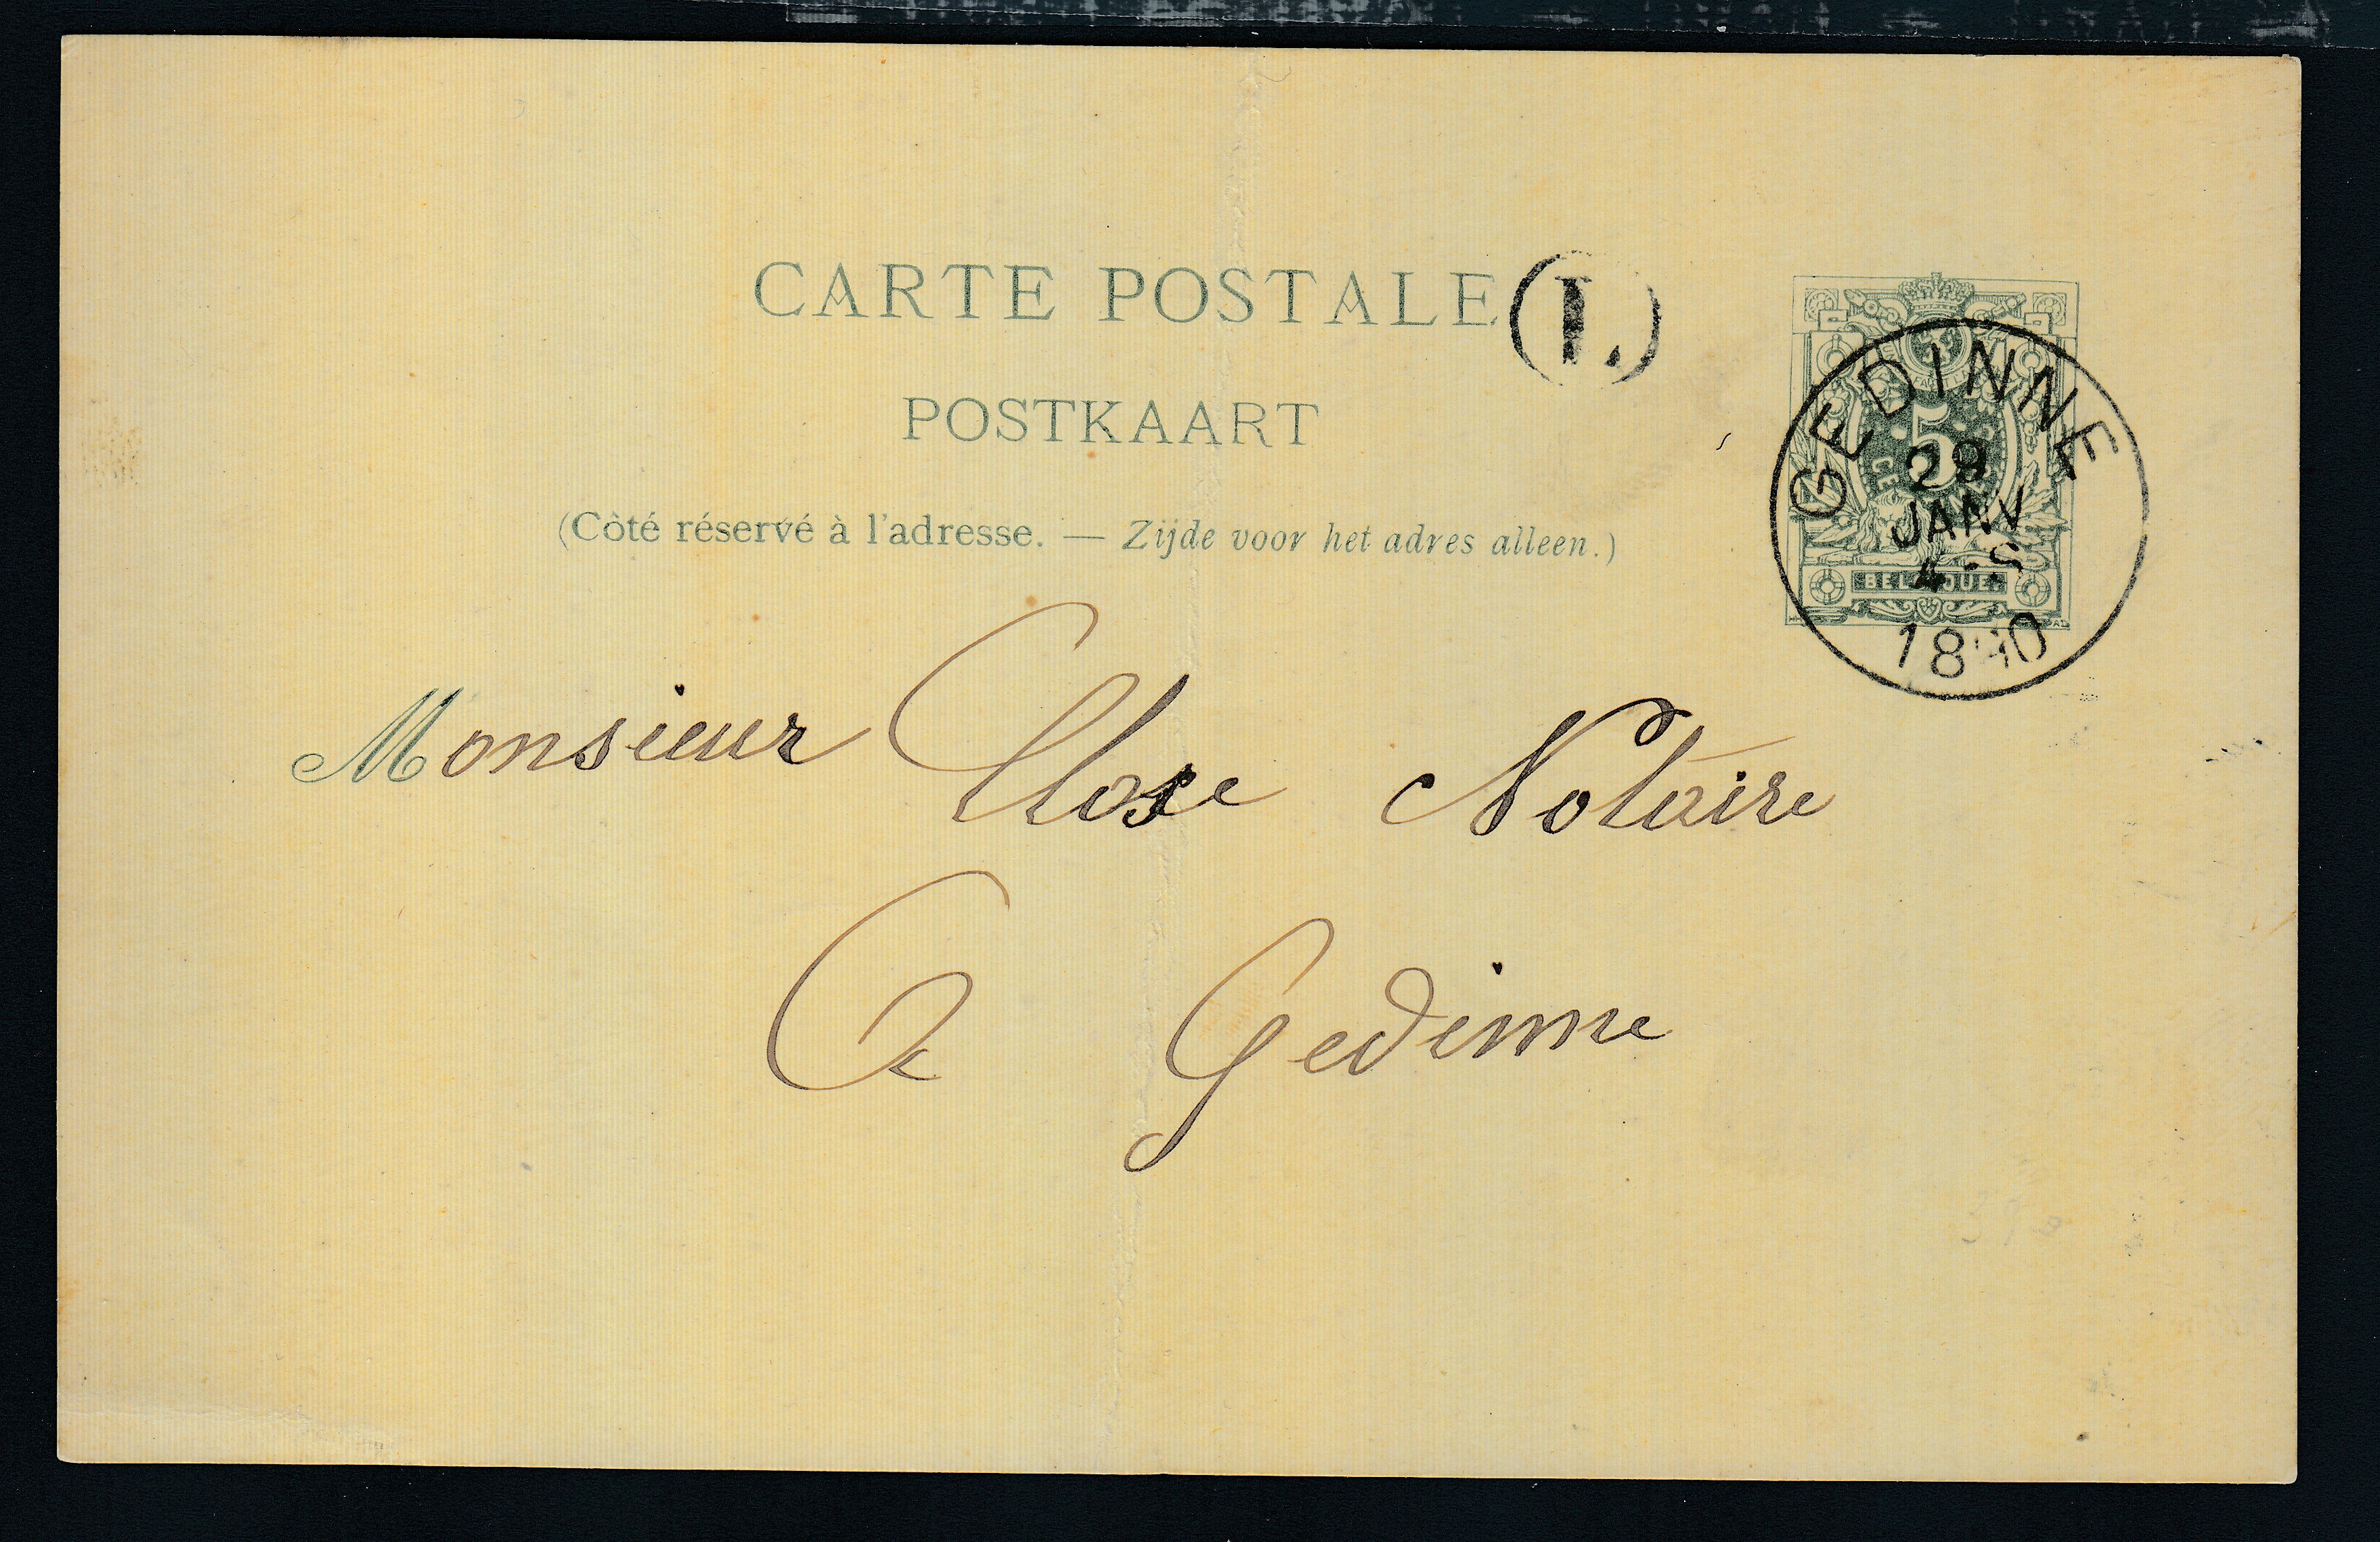 CARTE POSTALE
(I.)
POSTKAART
(Côté réservé à l'adresse. — Zijde voor het adres alleen.)
5
BELGIQUE.
GEDINNE
29
JANV
4-S
1890
Monsieur Close Notaire
A Gedinne